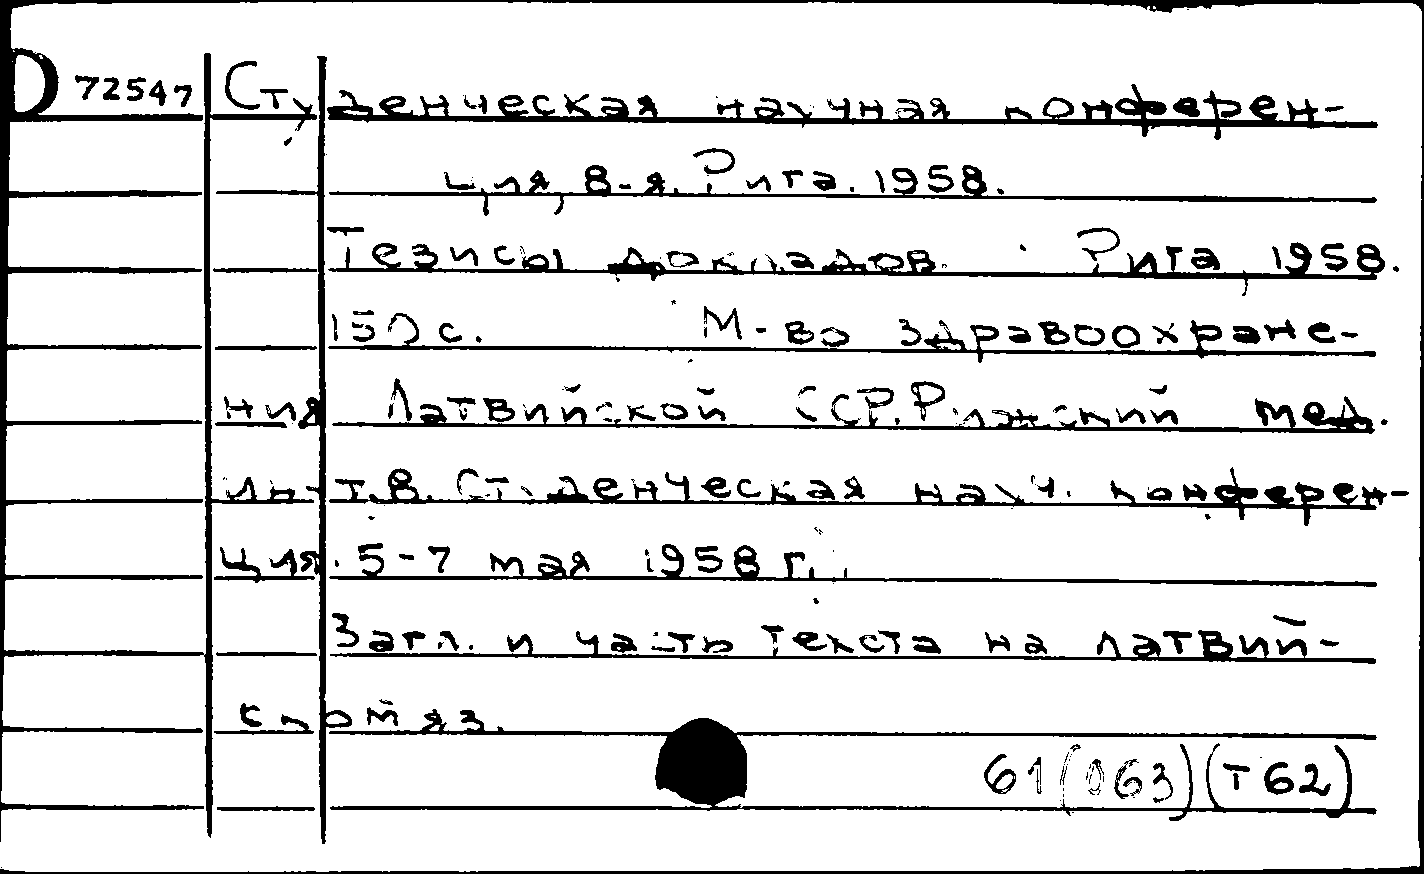 D 72547 Студенческая научная конферен-
ция, 8-я. Рига. 1958.
Тезисы докладов. Рига, 1958.
150 с. М-во здравоохране-
ния Латвийской ССР. Рижский мед.
ин-т. 8. Студенческая науч. конферен-
ция. 5-7 мая 1958 г.
Загл. и часть текста на латвий-
ском яз.
61(063)(Т62)